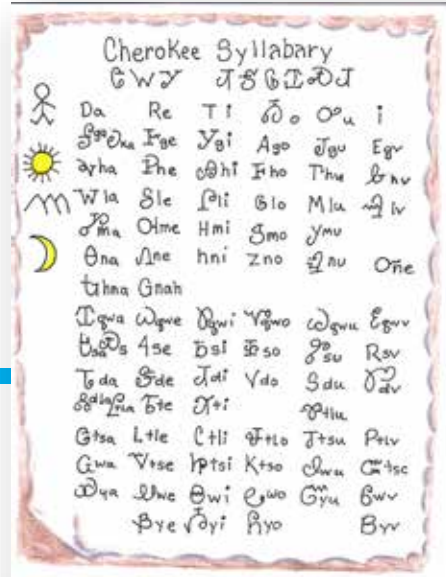 Cherokee Syllabary
ᏣᎳᎩ
Ꭰa Ꭱe Ꭲi Ꭳo Ꭴu i
Ꭶga Ꭷka Ꭸge Ꭹgi Ꭺgo Ꭻgu Ꭼgv
Ꭽha Ꭾhe Ꭿhi Ꮀho Ꮁhu Ꮂhv
Ꮃla Ꮄle Ꮅli Ꮆlo Ꮇlu Ꮈlv
Ꮉma Ꮊme Ꮋmi Ꮌmo Ꮍmu
Ꮎna Ꮑne Ꮒni Ꮓno Ꮔnu
Ꮏhna Ꮐnah
Ꮖqwa Ꮗqwe Ꮘqwi Ꮙqwo Ꮚqwu Ꮛqwv
Ꮜsa Ꮝs Ꮞse Ꮟsi Ꮠso Ꮡsu Ꮢsv
Ꮣda Ꮥde Ꮧdi Ꮩdo Ꮪdu Ꮫdv
Ꮬdla Ꮦte Ꮨti Ꮱtlu
Ꮳtsa Ꮮtle Ꮯtli Ꮰtlo Ꮷtsu Ꮲtlv
Ꮹwa Ꮴtse Ꮵtsi Ꮶtso Ꮽwu
Ꮿya Ꮺwe Ꮻwi Ꮼwo Ᏻyu Ꮾwv
Ᏸye Ᏹyi Ᏺyo Ᏼyv